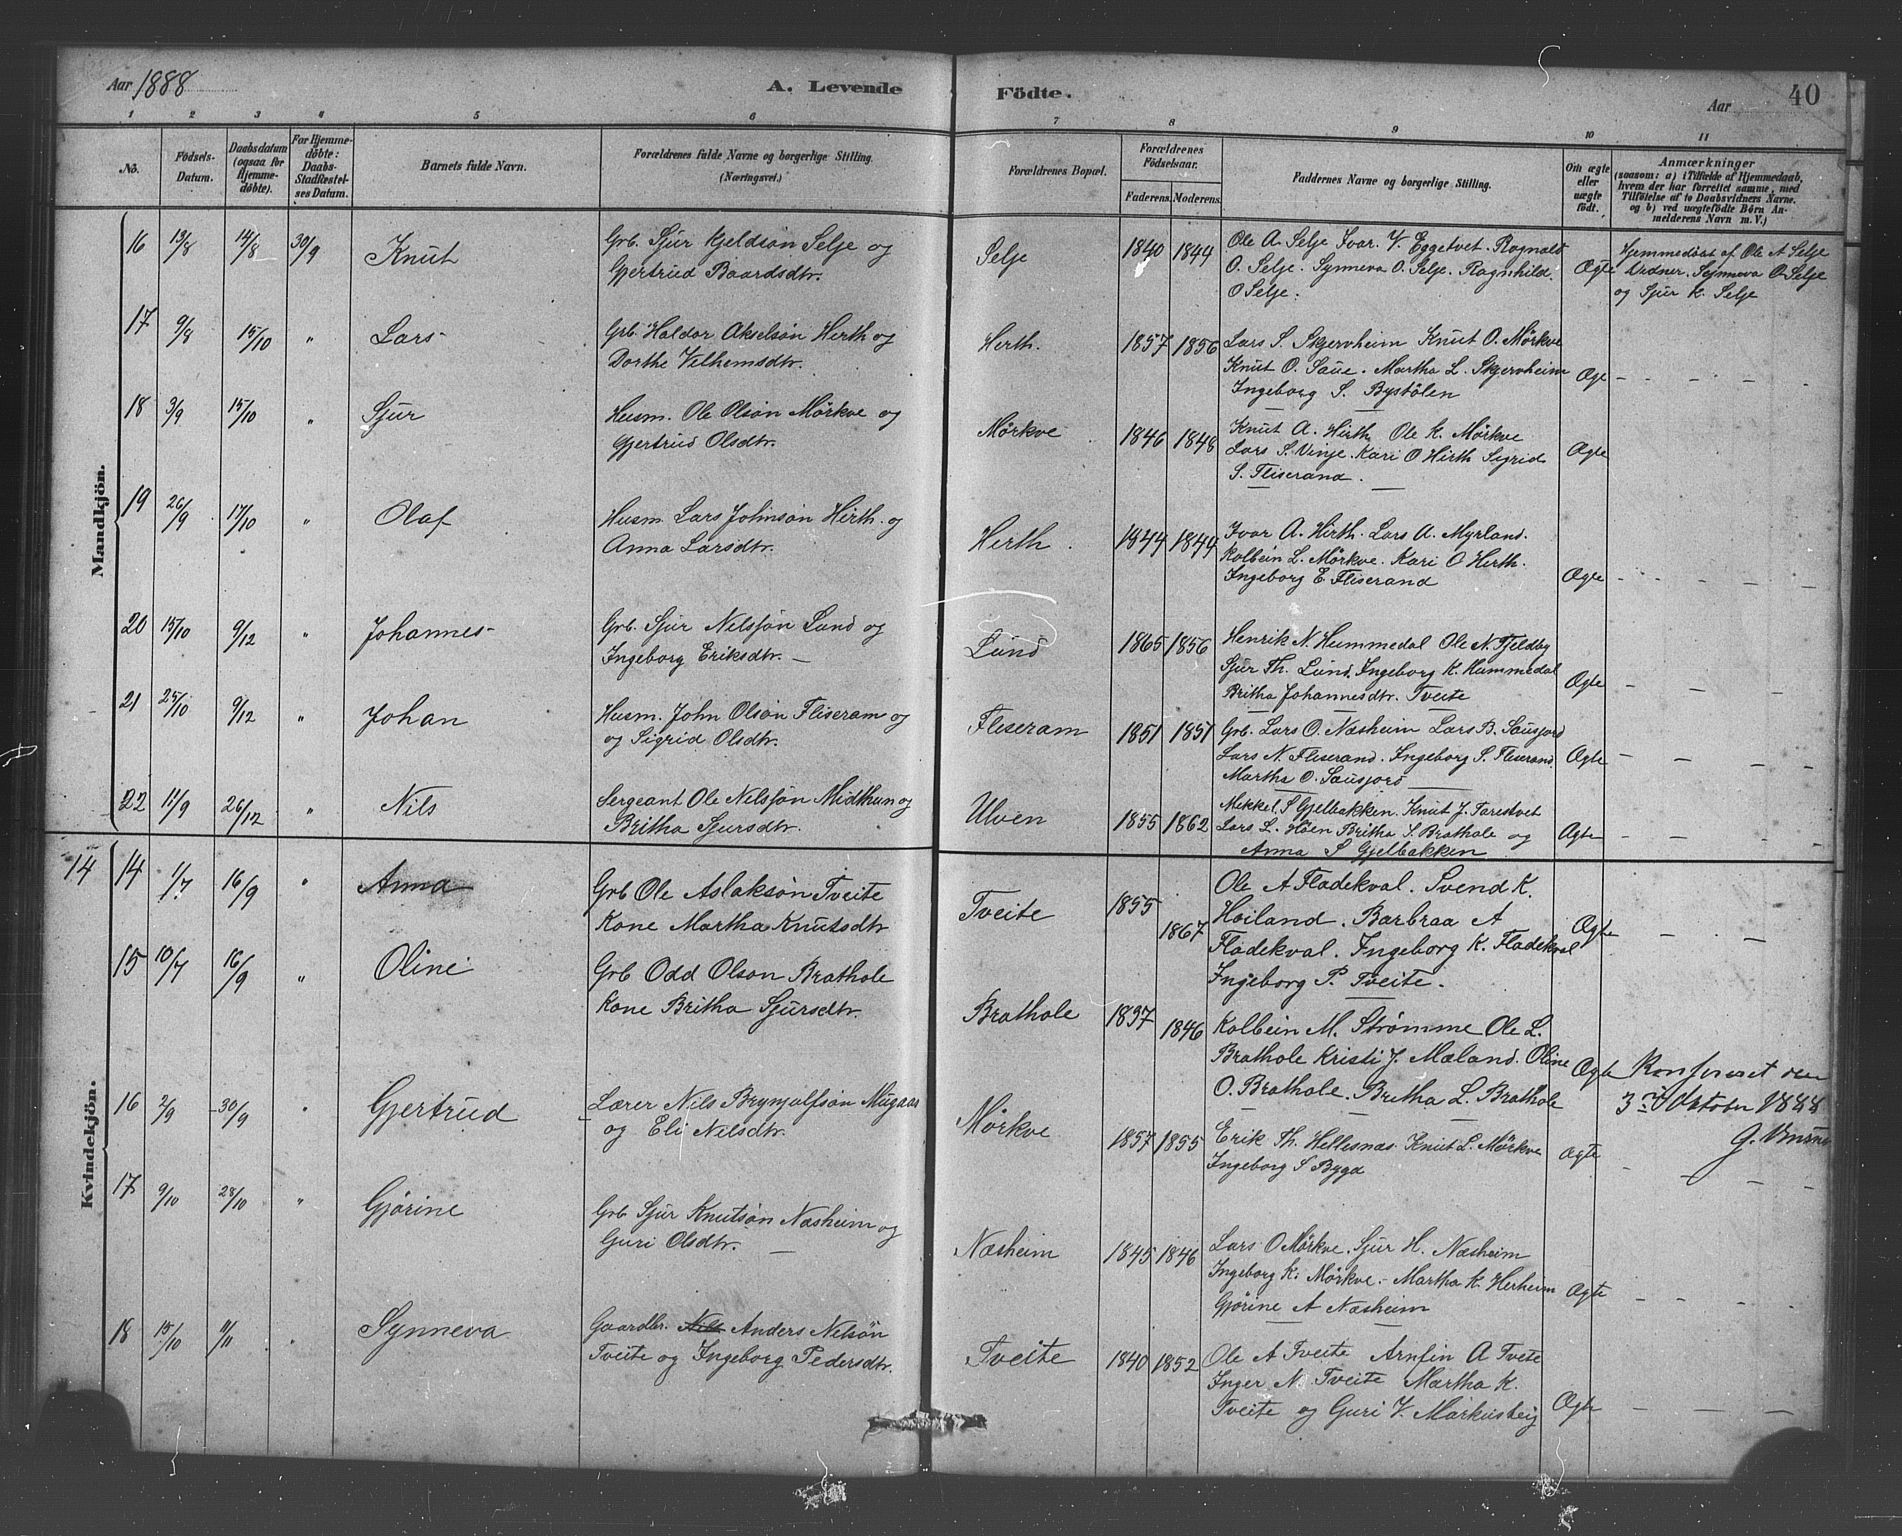 Aar 1888
A. Levende Födte.
Aar
40
1 2 3 4 5 6 7 8 9 10 11
No. Födsels-Datum. Daabsdatum (ogsaa for Hjemme-döbte). For Hjemme-döbte: Daabs-Stadfæstel-ses Datum. Barnets fulde Navn. Forældrenes fulde Navne og borgerlige Stilling. (Næringsvei.) Forældrenes Bopæl. Forældrenes Födselsaar. Faderens. Moderens. Faddernes Navne og borgerlige Stilling. Om ægte eller uægte födt. Anmærkninger (saasom: a) i Tilfælde af Hjemmedaab, hvem der har forrettet samme, med Tilföielse af to Daabsvidners Navne. og b) ved uægtefödte Börn An-melderens Navn m. V.)
Mandkjön.
16 13/8 14/8 30/9 Knut Grb. Sjur Kjeldsön Selje og Selje 1840 1844 Ole A. Selje Ivar. V. Eggetvet. Ragnald Ægte Hjemmedöbt af Ole A Selje
Gjertrud Baardsdtr. O. Selje. Synneva O. Selje. Ragnhild Vidner. Synneva O Selje
O Selje. og Sjur K. Selje
17 9/8 15/10 " Lars Grb. Haldor Akselsön Herth og Herth. 1857 1856 Lars S. Skjervheim Knut O. Mörkve
Dorthe Vilhemsdtr. Knut O. Saue. Martha L. Skjervheim Ægte
Ingeborg S. Bystölen
18 3/9 15/10 " Sjur Husm. Ole Olsön Mörkve og Mörkve 1846 1848 Knut A. Hirth, Ole K. Mörkve
Gjertrud Olsdtr. Lars S. Vinje. Kari O Hirth Sigrid Ægte
S. Fliserand.
19 26/9 17/10 " Olaf Husm. Lars Johnsön Hirth. og Herth. 1844 1849 Ivar A. Hirth. Lars A. Myrland.
Anna Larsdtr. Kolbein L. Mörkve. Kari O Herth.
Ingeborg E. Fliserand Ægte
20 15/10 9/12 " Johannes Grb. Sjur Nilssön Lund og Lund 1865 1856 Henrik N. Hummedal Ole N. Fjeldby
Ingeborg Eriksdtr. Sjur Th. Lund. Ingeborg K. Hummedal
Britha Johannesdtr. Tveite Ægte
21 25/10 9/12 " Johan Husm. John Olsön Fliseram og Fliseram 1851 1851 Grb. Lars O. Næsheim Lars B. Sausjord
og Sigrid Olsdtr. Lars N. Fliserand. Ingeborg S. Fliserand. Ægte
Martha O. Sausjord
22 11/9 26/12 " Nils Sergeant Ole Nilssön Midthun og Ulven 1855 1862 Mikkel S Gjelbakken. Knut J. Farestvet
Britha Sjursdtr. Lars L. Höen Britha S. Brathole og Ægte
Anna S Gjelbakken
Kvindekjön.
14 14 1/7 16/9 " Anna Grb Ole Aslaksön Tveite Tveite 1855 1867 Ole A Fladekval. Svend K.
Kone Martha Knutsdtr Hoiland. Barbraa A Ægte
Fladekval. Ingeborg K. Fladekval
Ingeborg P. Tveite.
15 10/7 16/9 " Oline Grb Odd Olson Brathole Brathole 1837 1846 Kolbein M. Strømme Ole L.
Kone Britha Sjursdtr. Brathole Kristi J. Mæland. Oline Ægte
O. Brathole. Bretha L. Brathole
Konfereret den
3die Oktober 1888
16 2/9 30/9 " Gjertrud Lærer Nils Brynjulfsön Mugaas Mörkve 1857 1855 Erik Th. Hellesnæs Knut L. Mörkve Ægte
og Eli Nilsdtr. Ingeborg S Bygd
17 9/10 28/10 " Gjörine Grb Sjur Knutsön Næsheim og Næsheim 1845 1846 Lars O Mörkve. Sjur H. Næsheim
Guri Olsdtr. Ingeborg K. Mörkve. Martha K. Herheim Ægte
Gjörine A Næsheim
18 15/10 11/11 " Synneva Gaardbr. Nils Anders Nelsön Tveite 1840 1852 Ole A Tveite Arnfin A Tvete
Tveite og Ingeborg Pedersdtr. Inger N. Tveite Martha K.
Tveite og Guri V. Markusteig Ægte